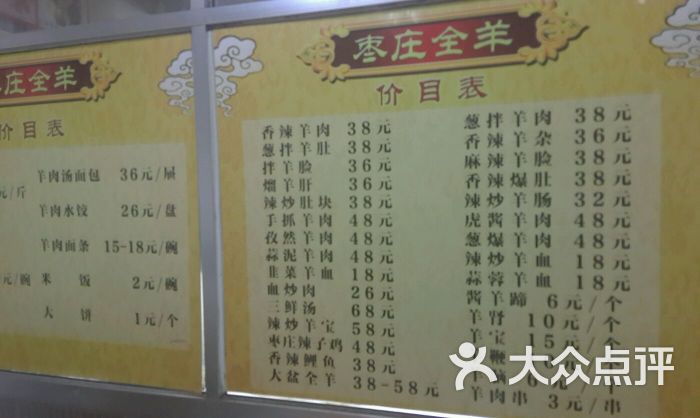 庄全羊
价目表
羊肉汤面包 36元/屉
元/斤
羊肉水饺 26元/盘
羊肉面条 15-18元/碗
元/碗 米饭 2元/碗
大饼 1元/个
枣庄全羊
价目表
香辣羊肉 38元
葱拌羊肚 38元
拌羊脸 36元
熘羊肝 38元
辣炒肚块 38元
手抓羊肉 48元
孜然羊肉 48元
蒜泥羊肉 48元
韭菜羊血 18元
血炒肉 26元
三鲜汤 68元
辣炒羊宝 58元
枣庄辣子鸡 48元
香辣鲤鱼 38元
大盆全羊 38-58元
葱拌羊肉 38元
香辣羊杂 36元
麻辣羊脸 38元
香辣爆肚 38元
辣炒羊肠 32元
虎酱羊肉 48元
葱爆羊肉 48元
辣炒羊血 18元
蒜蓉羊血 18元
酱羊蹄 6元/个
羊肾 10元/个
羊宝 15元/个
羊鞭
羊肉串 3元/串
大众点评